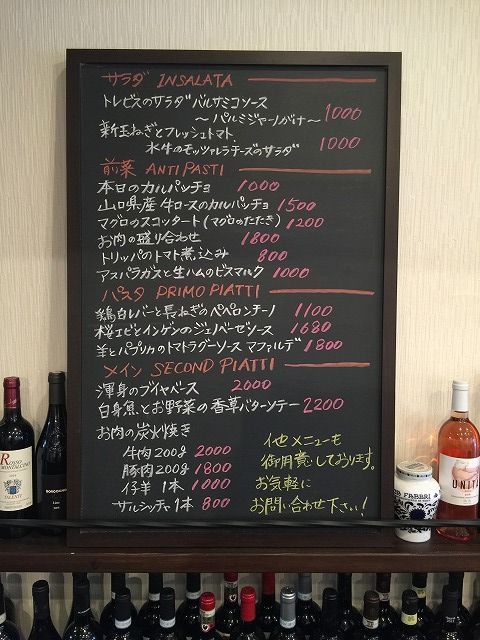 サラダ INSALATA
トレビスのサラダ バルサミコソース
〜パルミジャーノがけ〜 1000
新玉ねぎとフレッシュトマト
水牛のモッツァレラチーズのサラダ 1000
前菜 ANTIPASTI
本日のカルパッチョ 1000
山口県産 牛ロースのカルパッチョ 1500
マグロのスコッタート(マグロのたたき) 1200
お肉の盛り合わせ 1800
トリッパのトマト煮込み 800
アスパラガスと生ハムのビスマルク 1000
パスタ PRIMO PIATTI
鶏白レバーと長ねぎのペペロンチーノ 1100
桜エビとインゲンのジェノベーゼソース 1680
羊とパプリカのトマトラグーソース マファルデ 1800
メイン SECOND PIATTI
渾身のブイヤベース 2000
白身魚とお野菜の香草バターソテー 2200
お肉の炭火焼き
牛肉200g 2000
豚肉200g 1800
仔羊 1本 1000
サルシッチャ1本 800
他メニューも
御用意しております。
お気軽に
お問い合わせ下さい!
ROSSO
MONTALCINO
FABBRI
UNITI